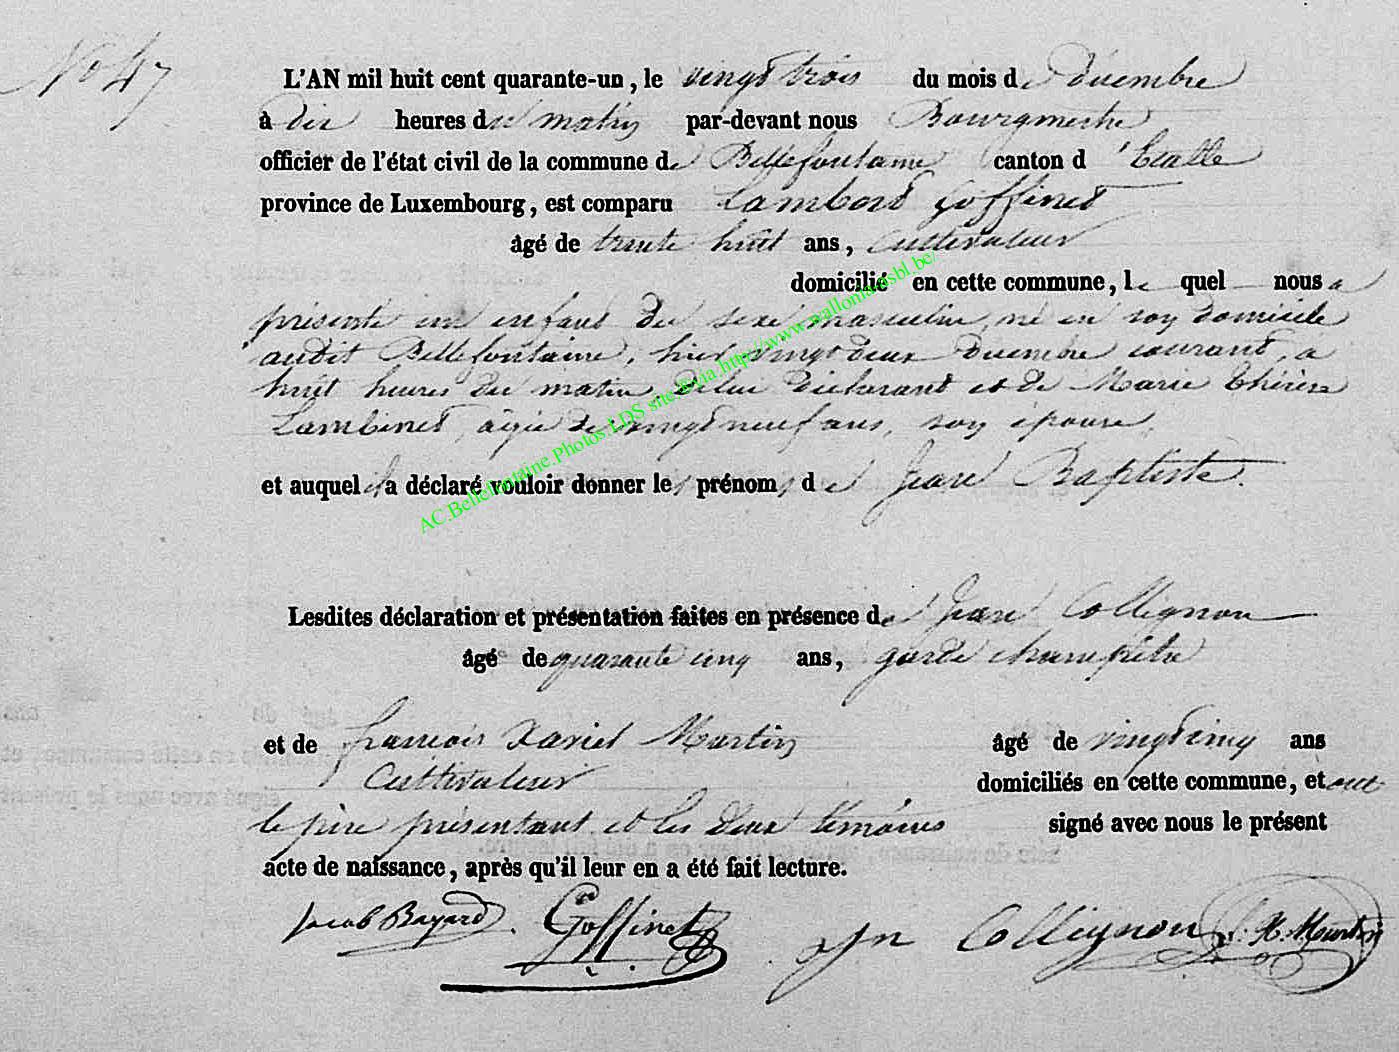 No 47
L'AN mil huit cent quarante-un, le vingt trois du mois de décembre
à dix heures du matin par-devant nous Bourgmestre
officier de l'état civil de la commune de Bellefontaine canton d'Etalle
province de Luxembourg, est comparu Lambert Goffinet
âgé de trente huit ans, Cultivateur
domicilié en cette commune, le quel nous a
présenté un enfant du sexe masculin, né en son domicile
audit Bellefontaine, hier vingt deux décembre courant, a
huit heures du matin, de lui déclarant et de Marie Thérèse
Lambinet, agée de vingt neuf ans, son épouse,
et auquel il a déclaré vouloir donner les prénoms de Jean Baptiste.
Lesdites déclaration et présentation faites en présence de Jean Collignon
âgé de quarante cinq ans, garde champêtre
et de françois Xavier Martin âgé de vingt cinq ans
Cultivateur domiciliés en cette commune, et ont
le père présentant et les deux témoins signé avec nous le présent
acte de naissance, après qu'il leur en a été fait lecture.
Jacob Bayard. Goffinet Jn Collignon f. X. Martin
AC.Bellefontaine.Photos.LDS site.fr via http://www.wallonia-asbl.be/